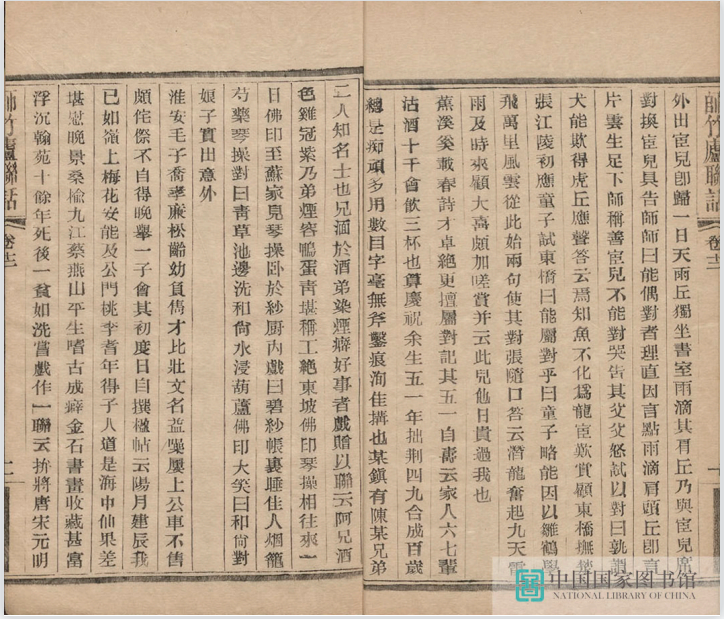 師竹廬聯話 卷十二 一
外出宦兒卽歸一日天雨丘獨坐書室雨滴其肩丘乃與宦兒席
對換宦兒具告師師曰能偶對者理直因言點雨滴肩頭丘卽言
片雲生足下師稱善宦兒不能對哭告其父父怒試以對曰孰謂
犬能欺得虎丘應聲答云焉知魚不化爲龍宦歎賞顧東橋撫楚
張江陵初應童子試東橋曰能屬對乎曰童子略能因以雛鶴學
飛萬里風雲從此始兩句使其對張隨口答云潛龍奮起九天雷
雨及時來顧大喜頗加嗟賞并云此兒他日貴過我也
蕉溪奚載春詩才卓絕更擅屬對記其五一自壽云家人六七輩
沽酒十千會飲三杯也算慶祝余生五一年拙荆四九合成百歲
總是痴頑多用數目字毫無斧鑿痕洵佳搆也某鎭有陳某兄弟
二人知名士也兄湎於酒弟染煙癖好事者戲贈以聯云阿兄酒
色雞冠紫乃弟煙容鴨蛋靑堪稱工絕東坡佛印琴操相往來一
日佛印至蘇家見琴操臥於紗厨內戲曰碧紗帳裏睡佳人烟籠
芍藥琴操對曰靑草池邊洗和尙水浸葫蘆佛印大笑曰和尙對
娘子實出意外
淮安毛子喬孝廉松齡幼負雋才比壯文名益噪屢上公車不售
頗侘傺不自得晚擧一子會其初度日自撰楹帖云陽月建辰我
已如嶺上梅花安能及公門桃李耆年得子人道是海中仙果差
堪慰晚景桑楡九江蔡燕山平生嗜古成癖金石書畫收藏甚富
浮沉翰苑十餘年死後一貧如洗嘗戲作一聯云拚將唐宋元明
師竹廬聯話 卷十二 二
中国国家图书馆
NATIONAL LIBRARY OF CHINA